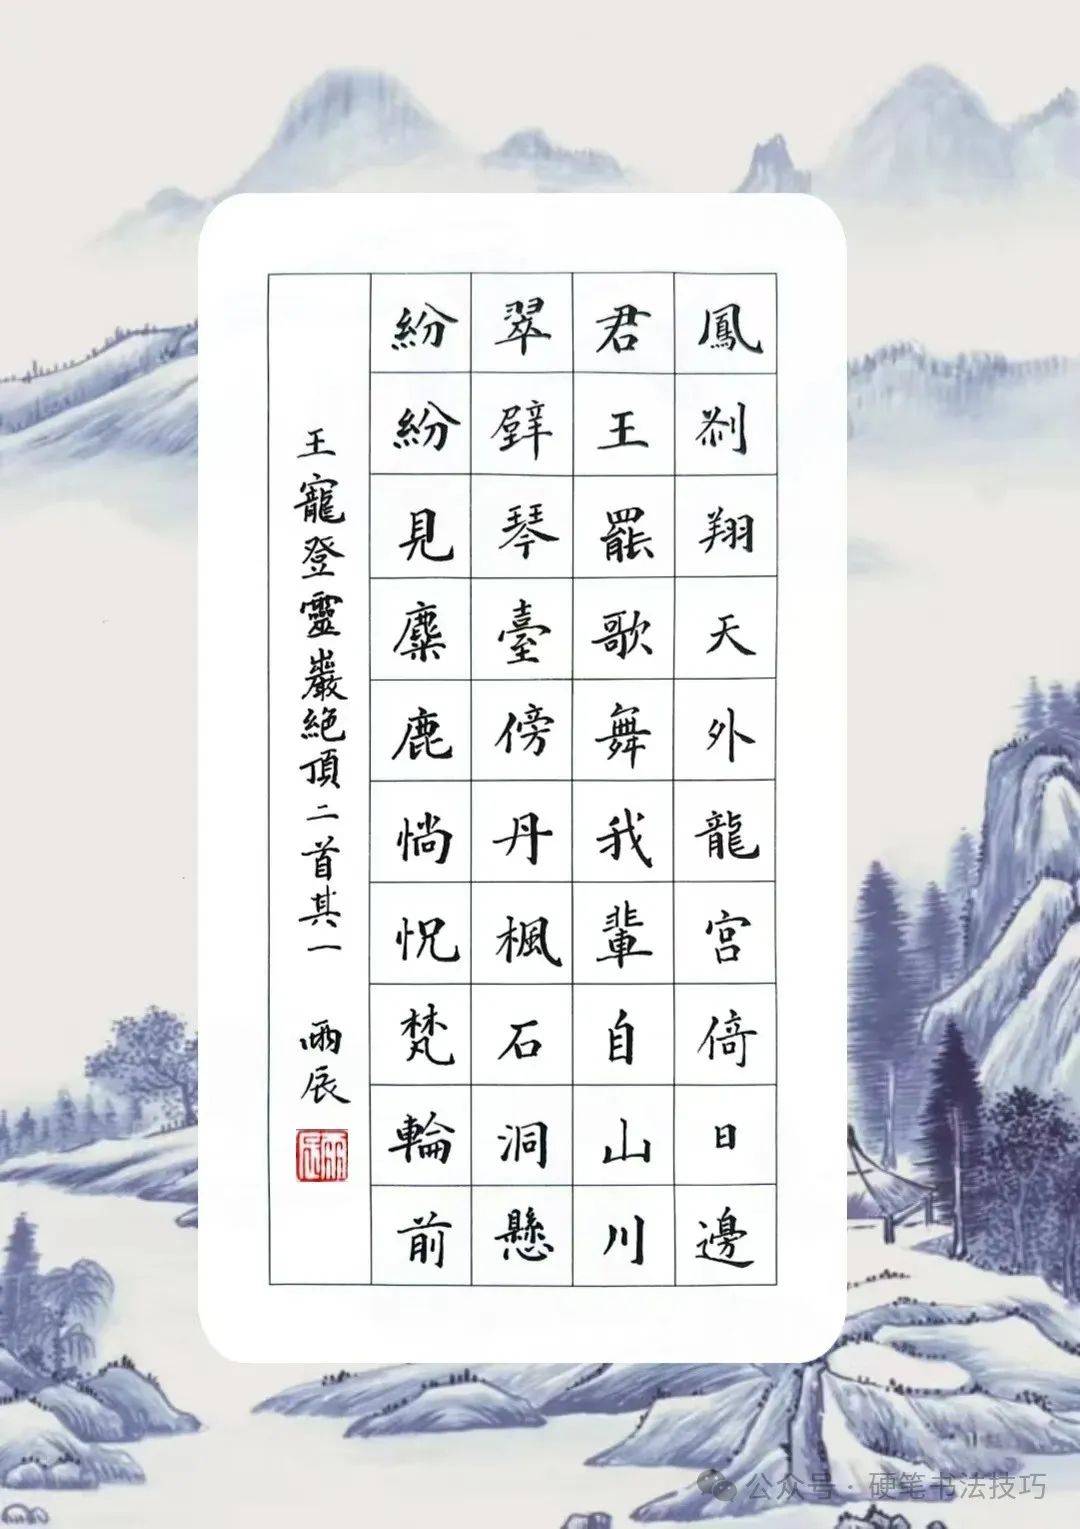 鳳刹翔天外龍宮倚日邊
君王罷歌舞我輩自山川
翠壁琴臺傍丹楓石洞懸
紛紛見麋鹿惝怳梵輪前
王寵登靈巖絕頂二首其一 雨辰
雨辰
公众号·硬笔书法技巧